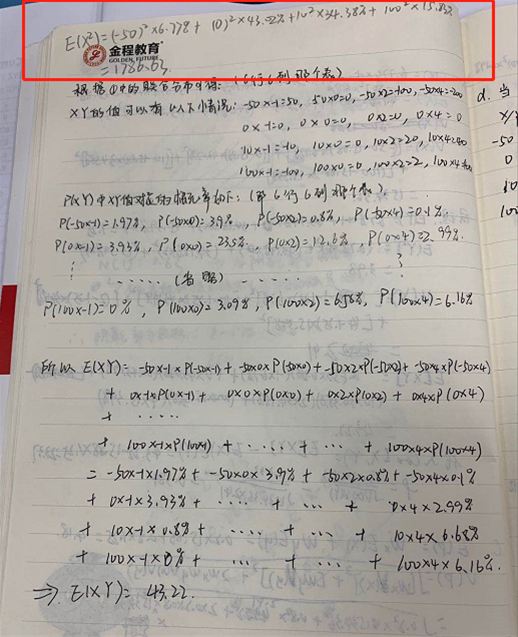 E(X²)=(-50)²×6.77%+ (0)²×43.02%+10²×34.38%+ 100²×15.83%
金程教育
GOLDEN FUTURE
=1786.63
根据①中的联合分布可得:(6行6列那个表)
XY的值可以有以下情况: -50x-1=50, 50x0=0, -50x2=-100, -50x4=-200
0x-1=0, 0x0=0, 0x2=0, 0x4=0
10x-1=-10, 10x0=0, 10x2=20, 10x4=40
100x-1=-100, 100x0=0, 100x2=2, 100x4=400
P(XY)中XY值对应的概率如下:(即6行6列那个表)
P(-50x-1)=1.97%, P(-50x0)=3.9%, P(-50x2)=0.8%, P(-50x4)=0.1%
P(0x-1)=3.93%, P(0x0)=23.5%, P(0x2)=12.6%, P(0x4)=2.99%
...... (省略) ......
P(100x-1)=0%, P(100x0)=3.09%, P(100x2)=6.58%, P(100x4)=6.16%
所以 E(XY)= -50x-1xP(-50x-1)+ -50x0xP(-50x0)+ -50x2xP(-50x2)+ -50x4xP(-50x4)
+ 0x-1xP(0x-1)+ 0x0xP(0x0)+ 0x2xP(0x2)+ 0x4xP(0x4)
+ ......
+ 100x-1xP(100x-1) + .... + ... + 100x4xP(100x4)
= -50x-1x1.97%+ -50x0x3.9%+ -50x2x0.8%+ -50x4x0.1%
+ 0x-1x3.93%+ .... + ... + 0x4x2.99%
+ 10x-1x0.8%+ .... + ... + 10x4x6.68%
+ 100x-1x0%+ .... + ... + 100x4x6.16%
⇒ E(XY)= 43.22.
d. 当
X/
-50
0
10
100